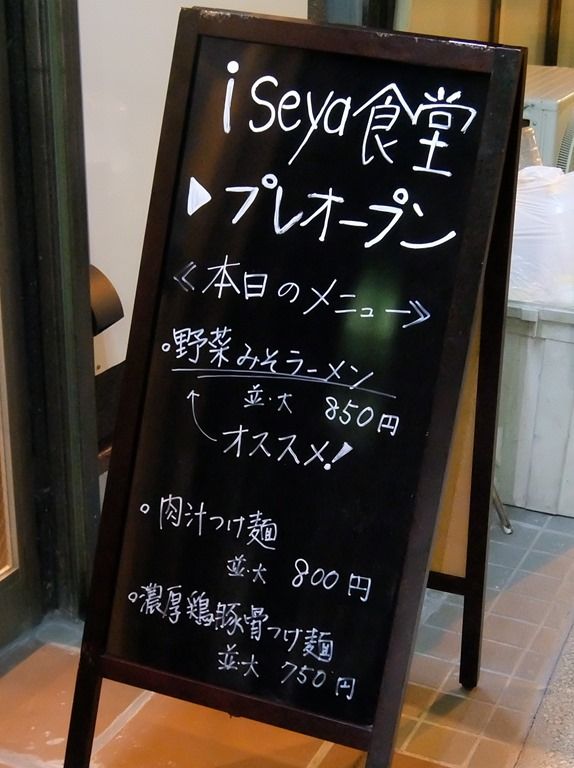 iseya食堂
▶プレオープン
≪本日のメニュー≫
。野菜みそラーメン
並・大 850円
オススメ!
。肉汁つけ麺
並・大 800円
。濃厚鶏豚骨つけ麺
並・大 750円